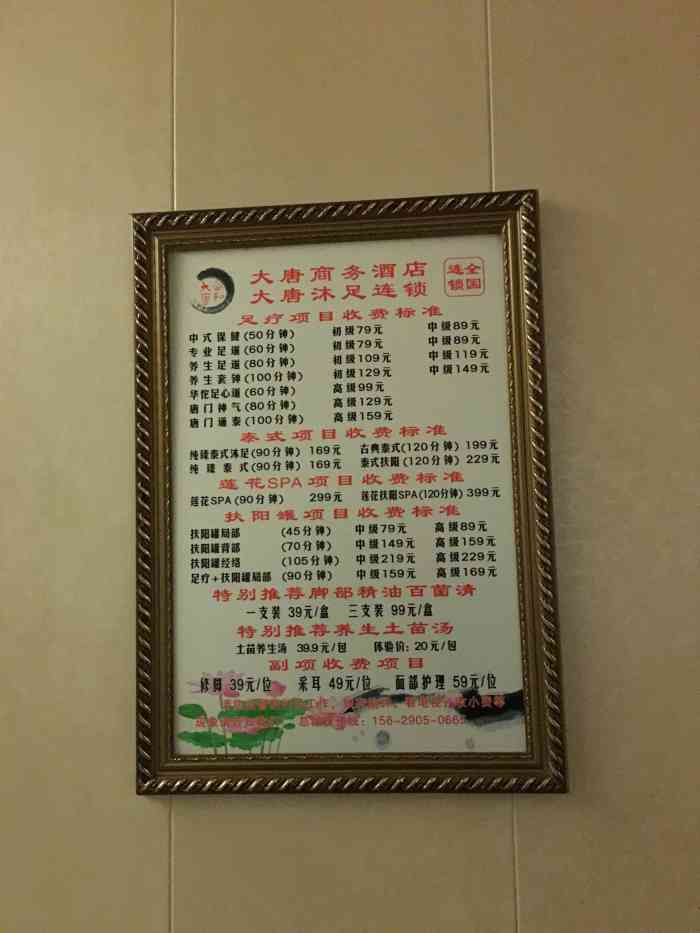 大唐商务酒店
大唐沐足连锁
全国连锁
足疗项目收费标准
中式保健(50分钟) 初级79元 中级89元
专业足道(60分钟) 初级79元 中级89元
养生足道(80分钟) 初级109元 中级119元
养生套钟(100分钟) 初级129元 中级149元
华佗足心道(60分钟) 高级99元
唐门神气(80分钟) 高级129元
唐门通泰(100分钟) 高级159元
泰式项目收费标准
纯臻泰式沐足(90分钟) 169元 古典泰式(120分钟) 199元
纯臻泰式(90分钟) 169元 泰式扶阳(120分钟) 229元
莲花SPA项目收费标准
莲花SPA(90分钟) 299元 莲花扶阳SPA(120分钟) 399元
扶阳罐项目收费标准
扶阳罐局部 (45分钟) 中级79元 高级89元
扶阳罐背部 (70分钟) 中级149元 高级159元
扶阳罐经络 (105分钟) 中级219元 高级229元
足疗+扶阳罐局部 (90分钟) 中级159元 高级169元
特别推荐脚部精油百菌清
一支装 39元/盒 三支装 99元/盒
特别推荐养生土苗汤
土苗养生汤 39.9元/包 体验价:20元/包
副项收费项目
修脚 39元/位 采耳 49元/位 面部护理 59元/位
156-2905-066